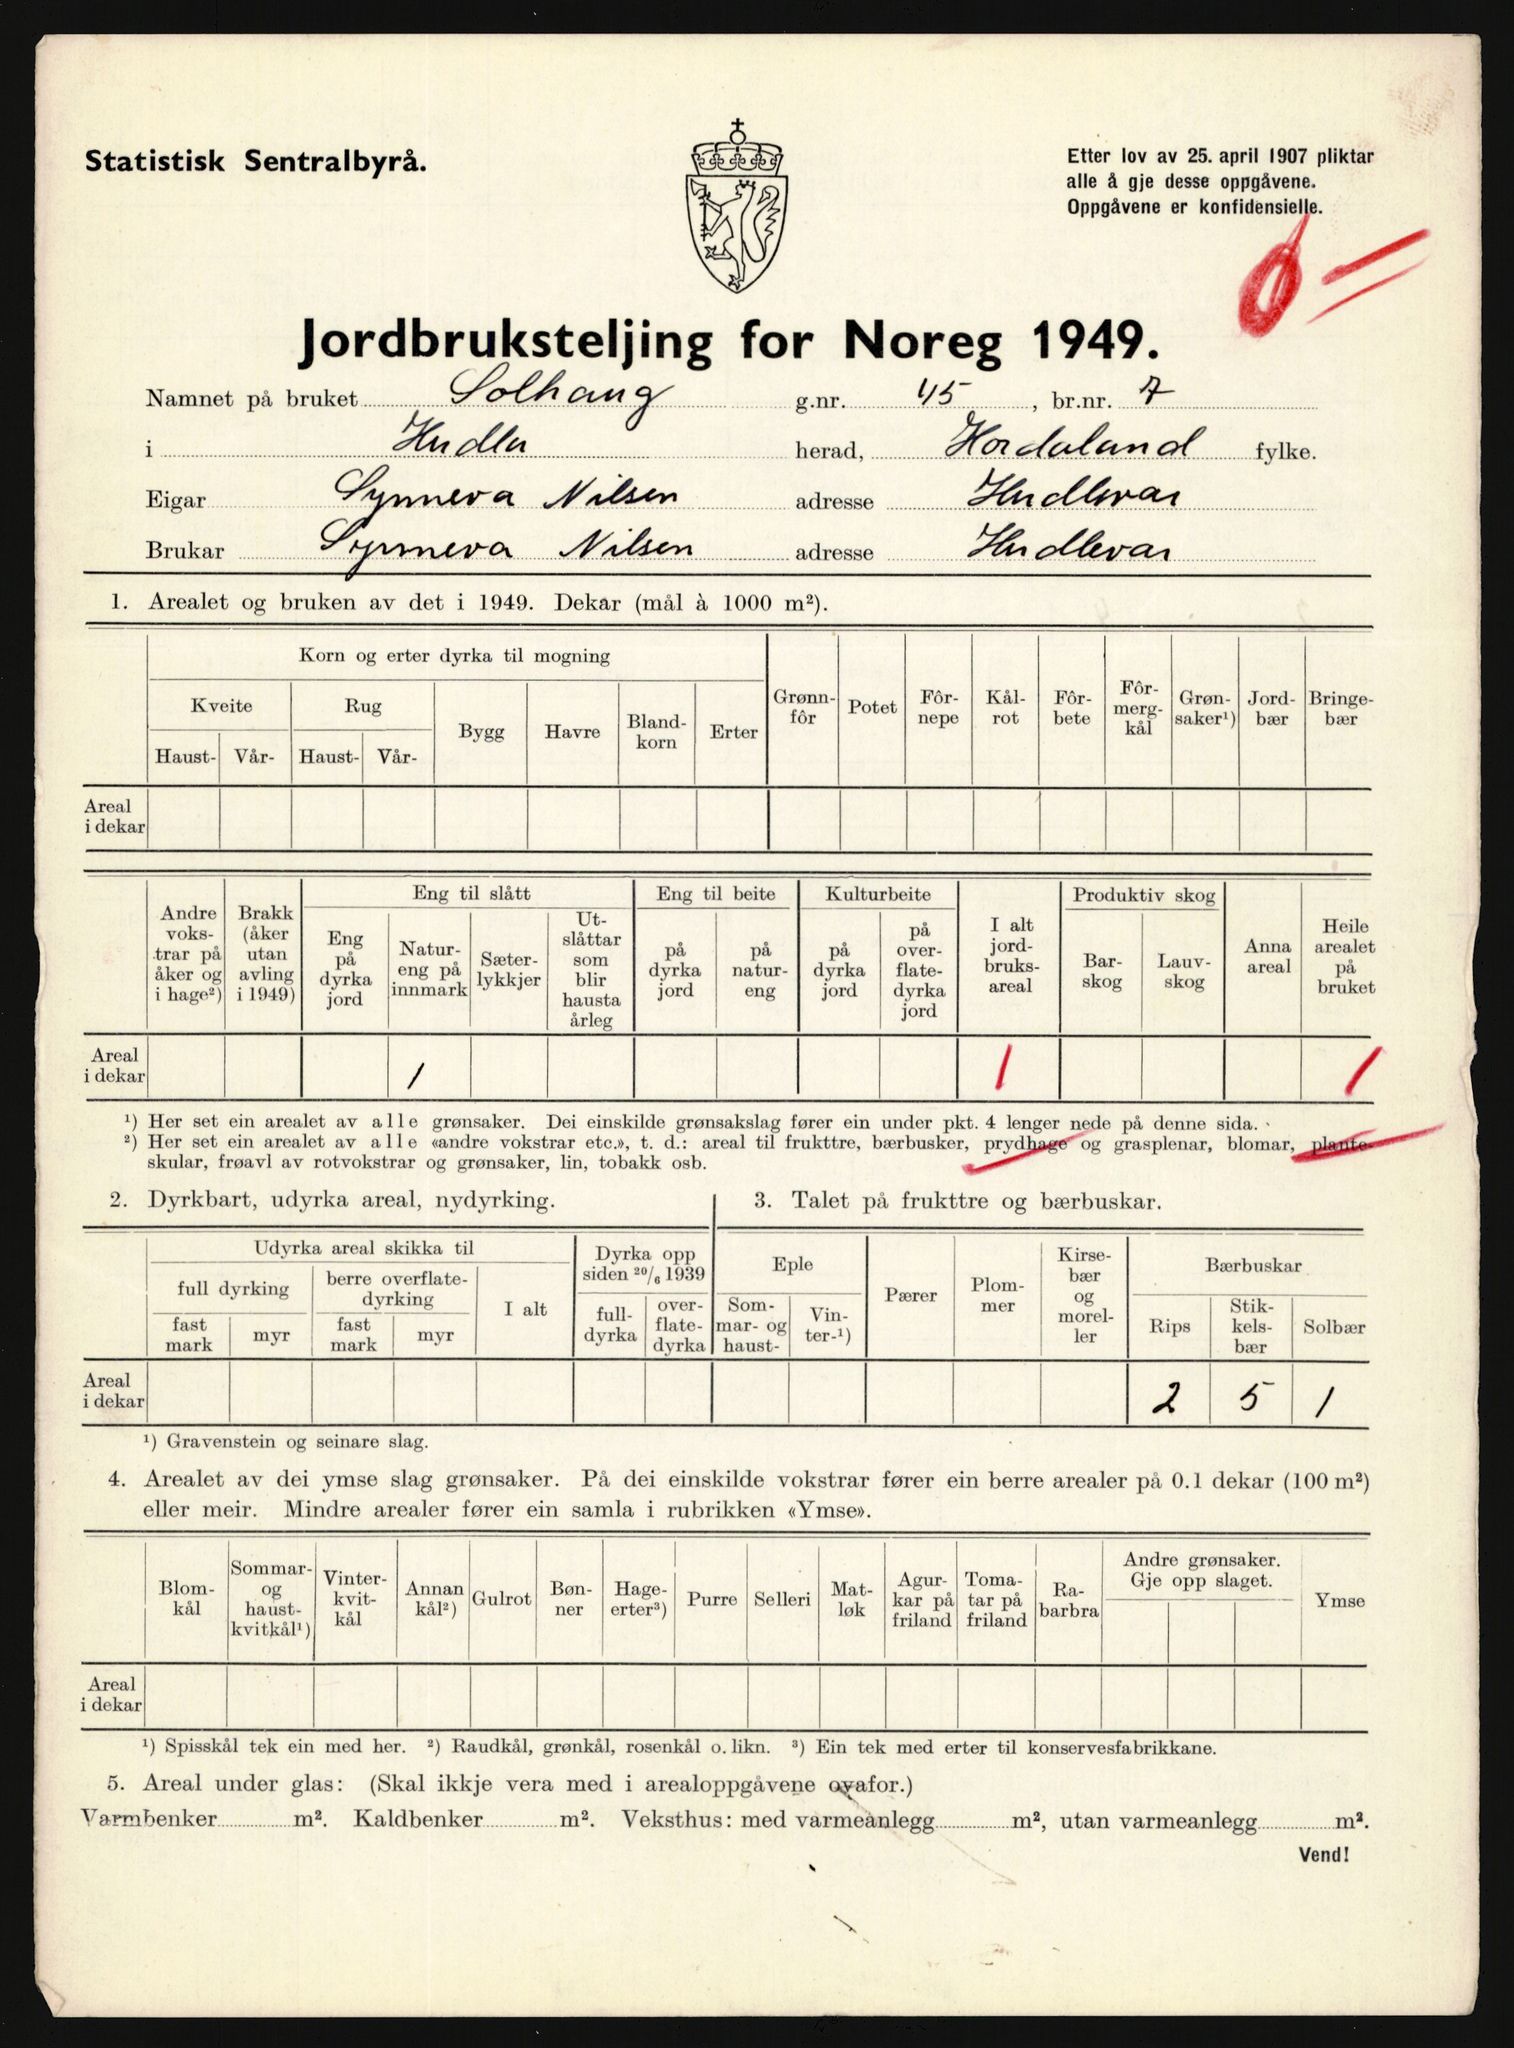 Statistisk Sentralbyrå.
Etter lov av 25. april 1907 pliktar
alle å gje desse oppgåvene.
Oppgåvene er konfidensielle.
0 –
Jordbruksteljing for Noreg 1949.
Namnet på bruket Solhaug g.nr. 45, br.nr. 7
i Hudla herad, Hordaland fylke.
Eigar Synneva Nilsen adresse Hudlevar
Brukar Synneva Nilsen adresse Hudlevar
1. Arealet og bruken av det i 1949. Dekar (mål à 1000 m²).
Korn og erter dyrka til mogning
Kveite Rug
Haust- Vår- Haust- Vår-
Bygg Havre Bland-korn Erter Grønn-fôr Potet Fôr-nepe Kål-rot Fôr-bete Fôr-merg-kål Grøn-saker¹) Jord-bær Bringe-bær
Areal
i dekar
Andre voks-trar på åker og i hage²) Brakk (åker utan avling i 1949)
Eng til slått
Eng på dyrka jord Natur-eng på innmark Sæter-lykkjer Ut-slåttar som blir hausta årleg
Eng til beite
på dyrka jord på natur-eng
Kulturbeite
på dyrka jord på over-flate-dyrka jord
I alt jord-bruks-areal
Produktiv skog
Bar-skog Lauv-skog
Anna areal Heile arealet på bruket
Areal
i dekar 1 1 1
¹) Her set ein arealet av alle grønsaker. Dei einskilde grønsakslag fører ein under pkt. 4 lenger nede på denne sida.
²) Her set ein arealet av alle «andre vokstrar etc.», t. d.: areal til frukttre, bærbusker, prydhage og grasplenar, blomar, plante-
skular, frøavl av rotvokstrar og grønsaker, lin, tobakk osb.
2. Dyrkbart, udyrka areal, nydyrking.
Udyrka areal skikka til
full dyrking berre overflate-dyrking I alt
fast mark myr fast mark myr
Dyrka opp siden 20/6 1939
full-dyrka over-flate-dyrka
3. Talet på frukttre og bærbuskar.
Eple
Som-mar- og haust- Vin-ter-¹)
Pærer Plom-mer Kirse-bær og morel-ler
Bærbuskar
Rips Stik-kels-bær Solbær
Areal
i dekar 2 5 1
¹) Gravenstein og seinare slag.
4. Arealet av dei ymse slag grønsaker. På dei einskilde vokstrar fører ein berre arealer på 0.1 dekar (100 m²)
eller meir. Mindre arealer fører ein samla i rubrikken «Ymse».
Blom-kål Sommar- og haust-kvitkål¹) Vinter-kvit-kål Annan kål²) Gulrot Bøn-ner Hage-erter³) Purre Selleri Mat-løk Agur-kar på friland Toma-tar på friland Ra-barbra Andre grønsaker. Gje opp slaget. Ymse
Areal
i dekar
¹) Spisskål tek ein med her. ²) Raudkål, grønkål, rosenkål o. likn. ³) Ein tek med erter til konservesfabrikkane.
5. Areal under glas: (Skal ikkje vera med i arealoppgåvene ovafor.)
Varmbenker m². Kaldbenker m². Veksthus: med varmeanlegg m², utan varmeanlegg m².
Vend!